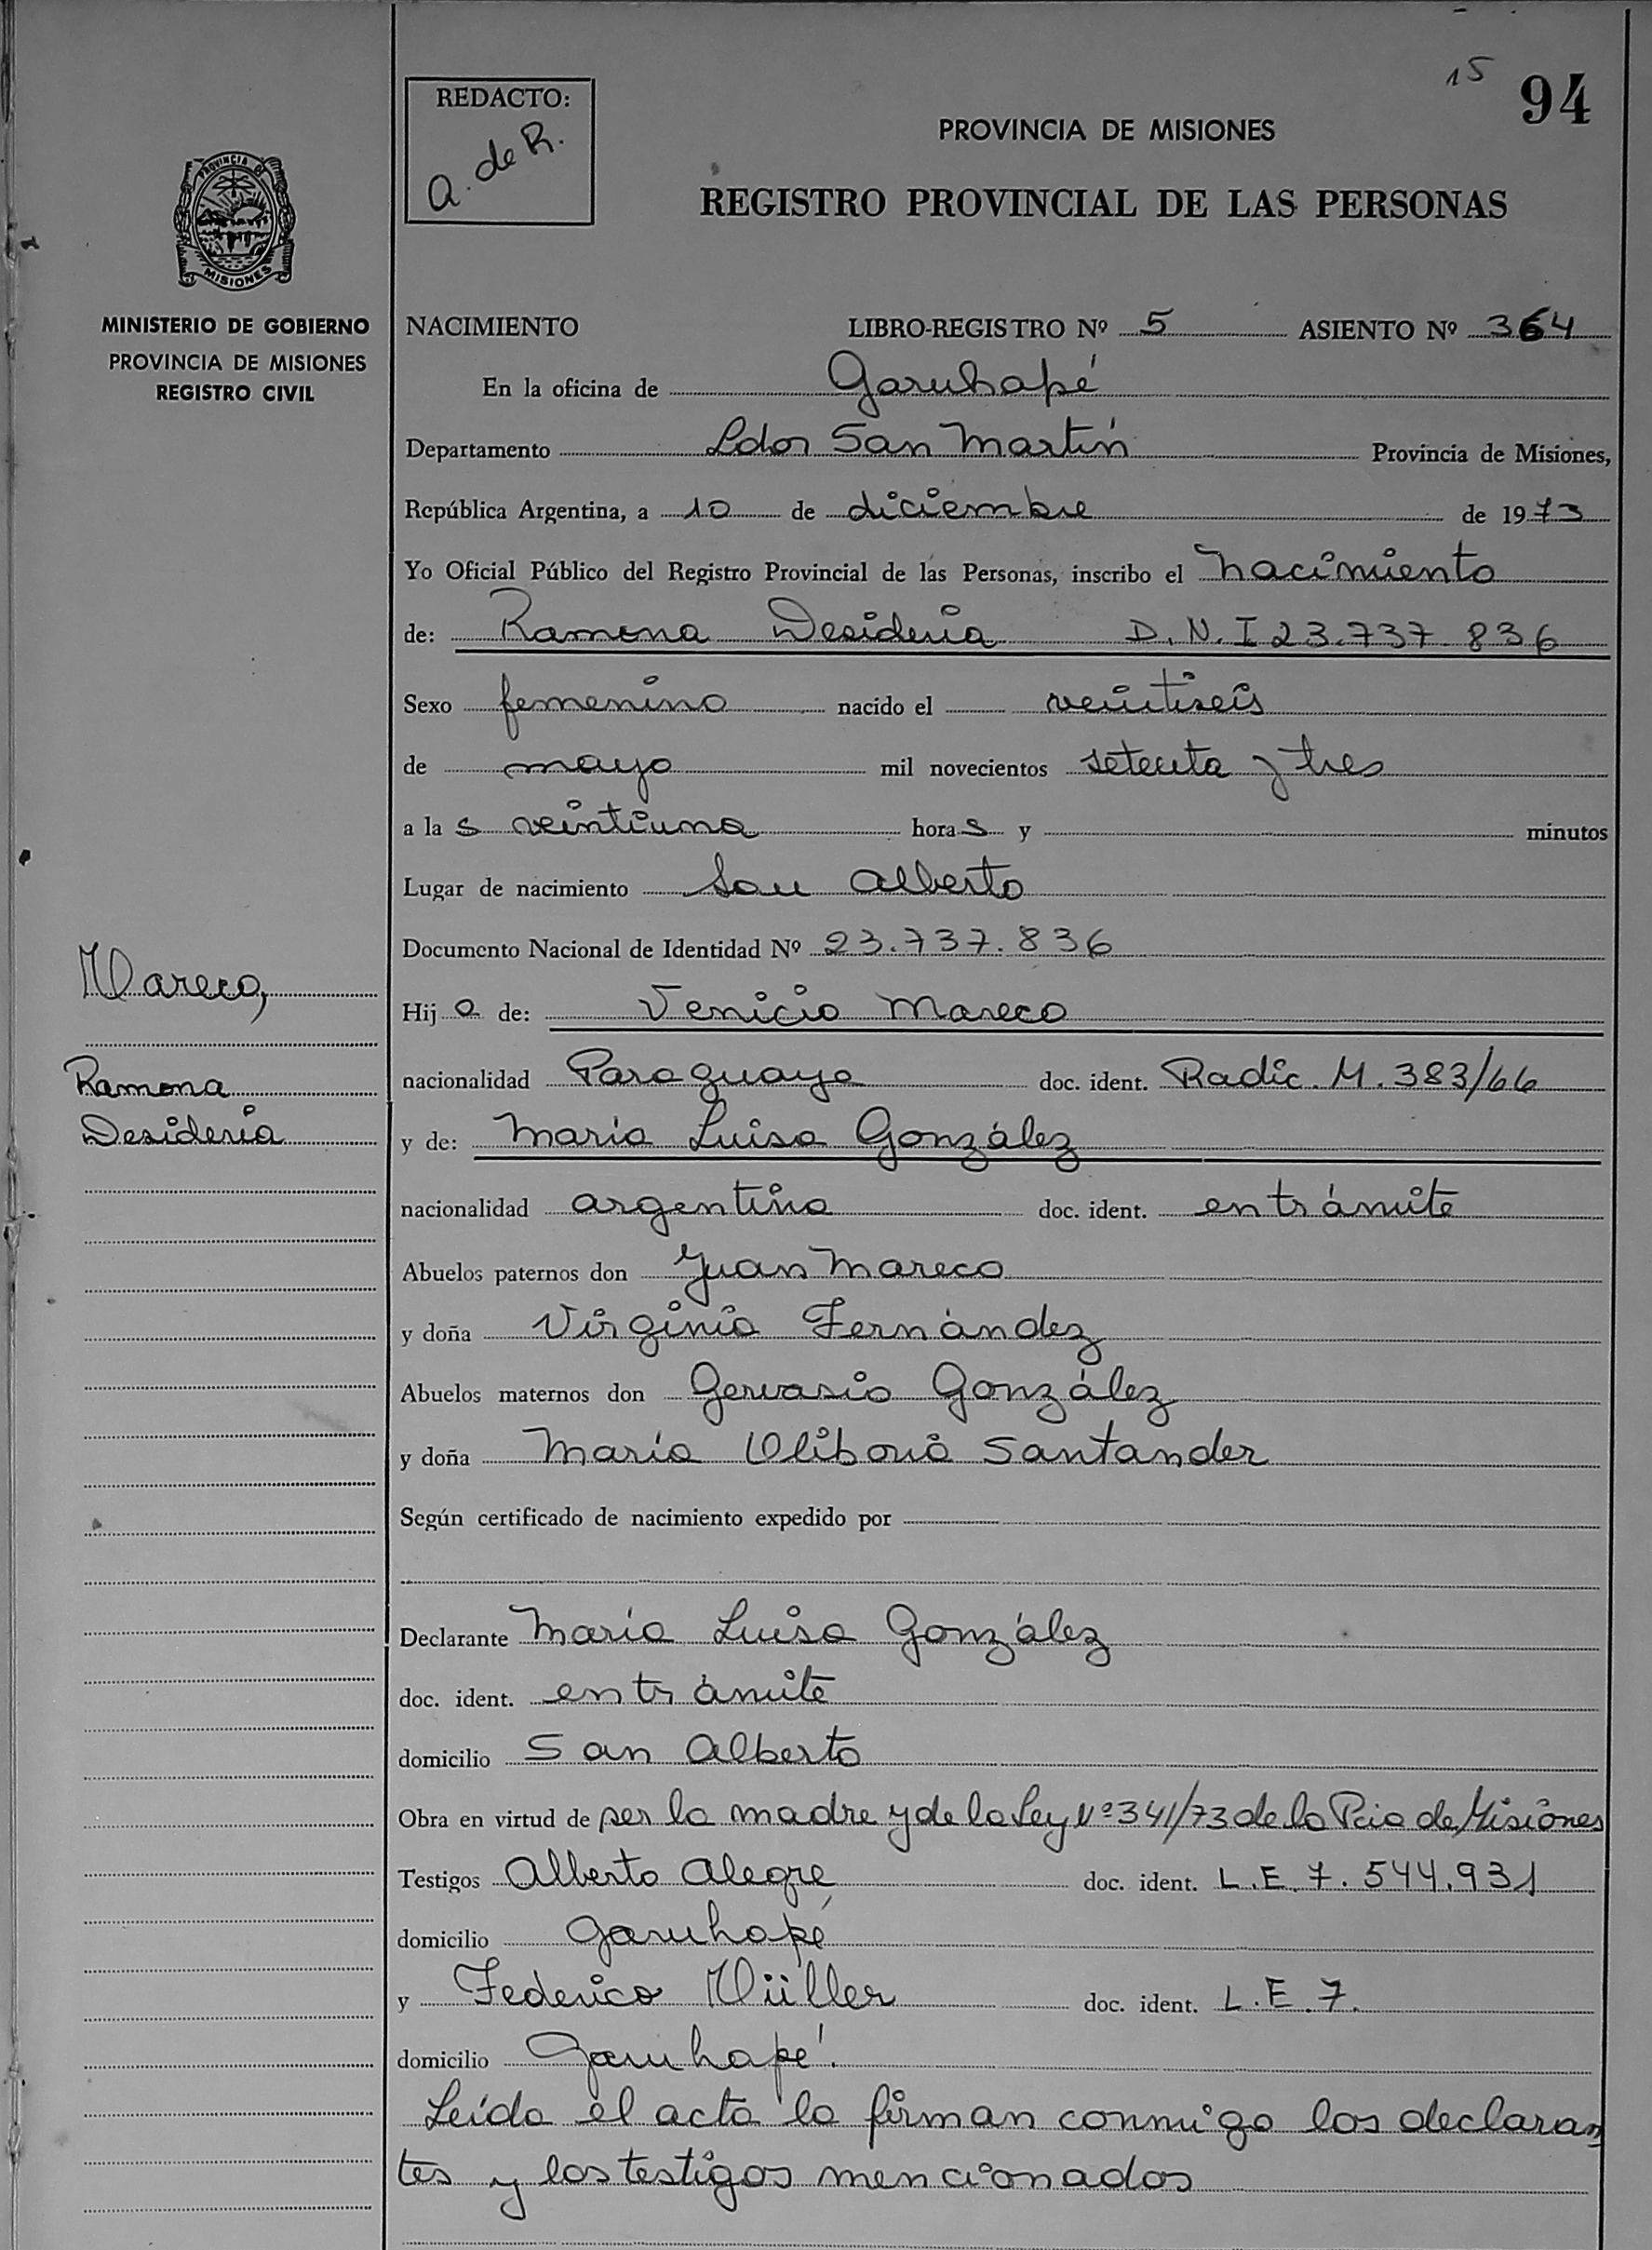 15 94
REDACTO:
A. de R.
PROVINCIA DE MISIONES
REGISTRO PROVINCIAL DE LAS PERSONAS
PROVINCIA DE
MISIONES
MINISTERIO DE GOBIERNO
PROVINCIA DE MISIONES
REGISTRO CIVIL
NACIMIENTO LIBRO-REGISTRO Nº 5 ASIENTO Nº 364
En la oficina de Garuhapé
Departamento Ldor San Martín Provincia de Misiones,
República Argentina, a 10 de diciembre de 1973
Yo Oficial Público del Registro Provincial de las Personas, inscribo el nacimiento
de: Ramona Desideria D.N.I 23.737.836
Sexo femenino nacido el veintiseis
de mayo mil novecientos setenta y tres
a la s veintiuna hora s y minutos
Lugar de nacimiento San Alberto
Documento Nacional de Identidad Nº 23.737.836
Mareco,
Ramona
Desideria
Hij a de: Venicio Mareco
nacionalidad Paraguaya doc. ident. Radic. M. 383/66
y de: María Luisa González
nacionalidad argentina doc. ident. en trámite
Abuelos paternos don Juan Mareco
y doña Virginia Fernández
Abuelos maternos don Gervasio González
y doña María Santander
Según certificado de nacimiento expedido por
Declarante María Luisa González
doc. ident. en trámite
domicilio San Alberto
Obra en virtud de ser la madre y de la Ley Nº 341/73 de la Pcia de Misiones
Testigos Alberto Alegre doc. ident. L.E. 7.544.931
domicilio Garuhapé
y Federico Müller doc. ident. L.E. 7.
domicilio Garuhapé.
Leída el acta la firman conmigo los declaran
tes y los testigos mencionados